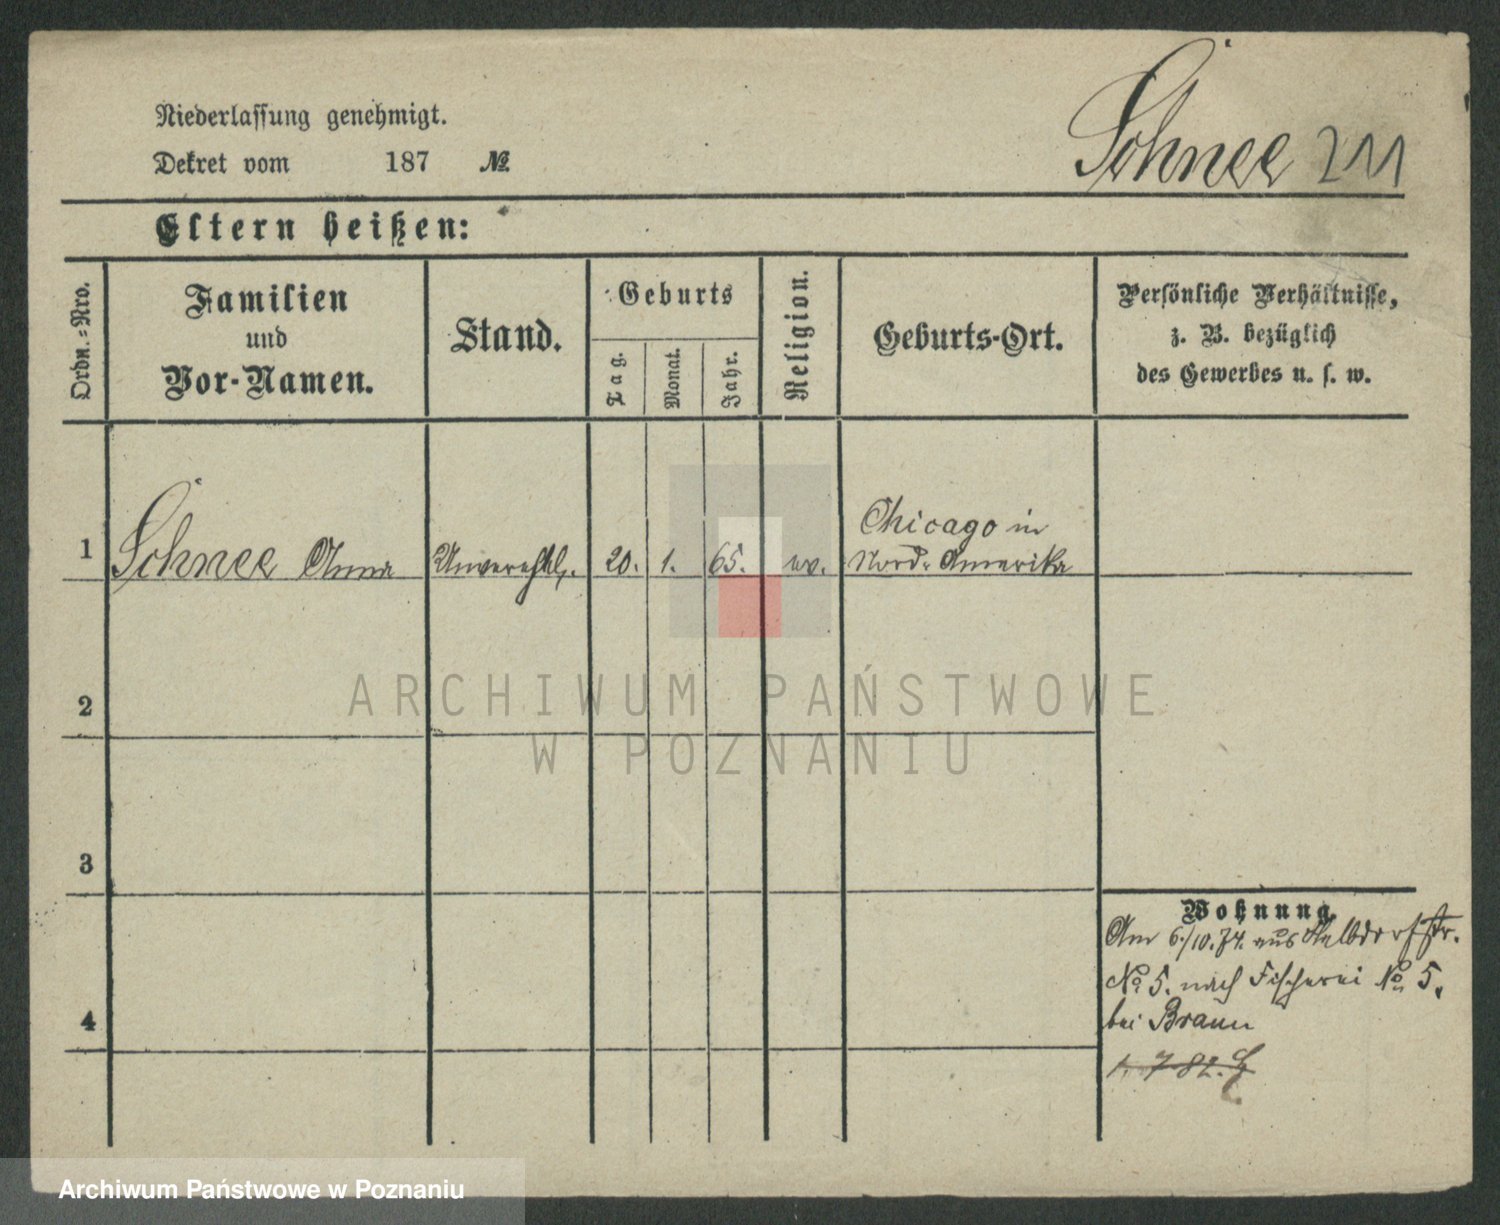 Niederlassung genehmigt.
Schnee 211
Dekret vom 187 №
Eltern heißen:
Ordn.=Nro.
Familien
und
Vor-Namen.
Stand.
Geburts
Tag.
Monat.
Jahr.
Religion.
Geburts-Ort.
Persönliche Verhältnisse,
z. B. bezüglich
des Gewerbes u. s. w.
Chicago in
1 Schnee Anna Unverehel. 20. 1. 65. ev. Nord-Amerika
2
ARCHIWUM PAŃSTWOWE
W POZNANIU
3
Wohnung.
Am 6./10.74. aus Halbdorfstr.
No 5. nach Fischerei No 5.
4
bei Braun
Archiwum Państwowe w Poznaniu